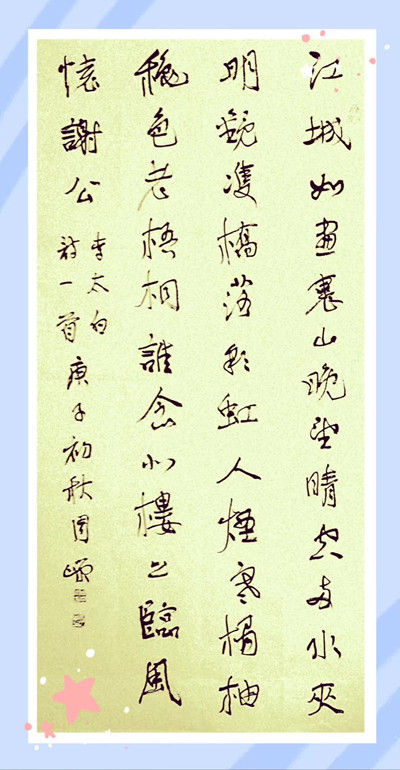 江城如畫裏山晚望晴空兩水夾
明鏡雙橋落彩虹人煙寒橘柚
秋色老梧桐誰念北樓上臨風
懷謝公
李太白
詩一首庚子初秋周